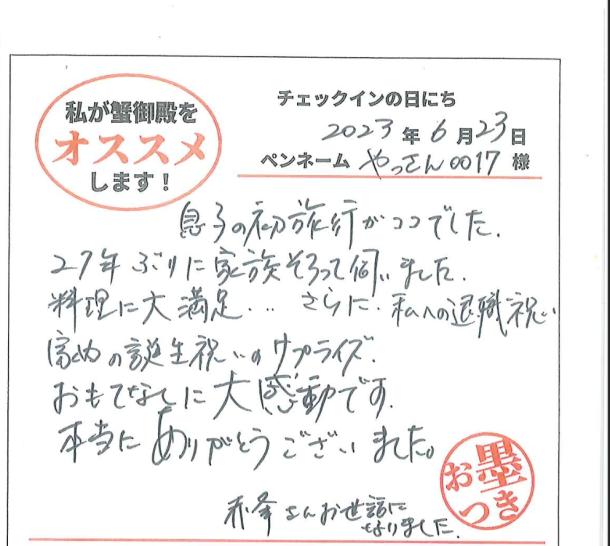 私が蟹御殿を
オススメ
します！
チェックインの日にち
2023年6月23日
ペンネーム やっさん0017 様
息子の初旅行がココでした.
27年ぶりに家族そろって伺いました.
料理に大満足... さらに. 私への退職祝い
の誕生祝いのサプライズ.
おもてなしに大感動です.
本当にありがとうございました。
お墨つき
赤峰さんお世話に
なりました.